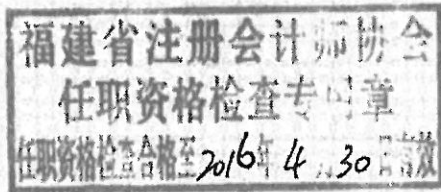 福建省注册会计师协会
任职资格检查专用章
任职资格检查合格至2016年4月30日有效